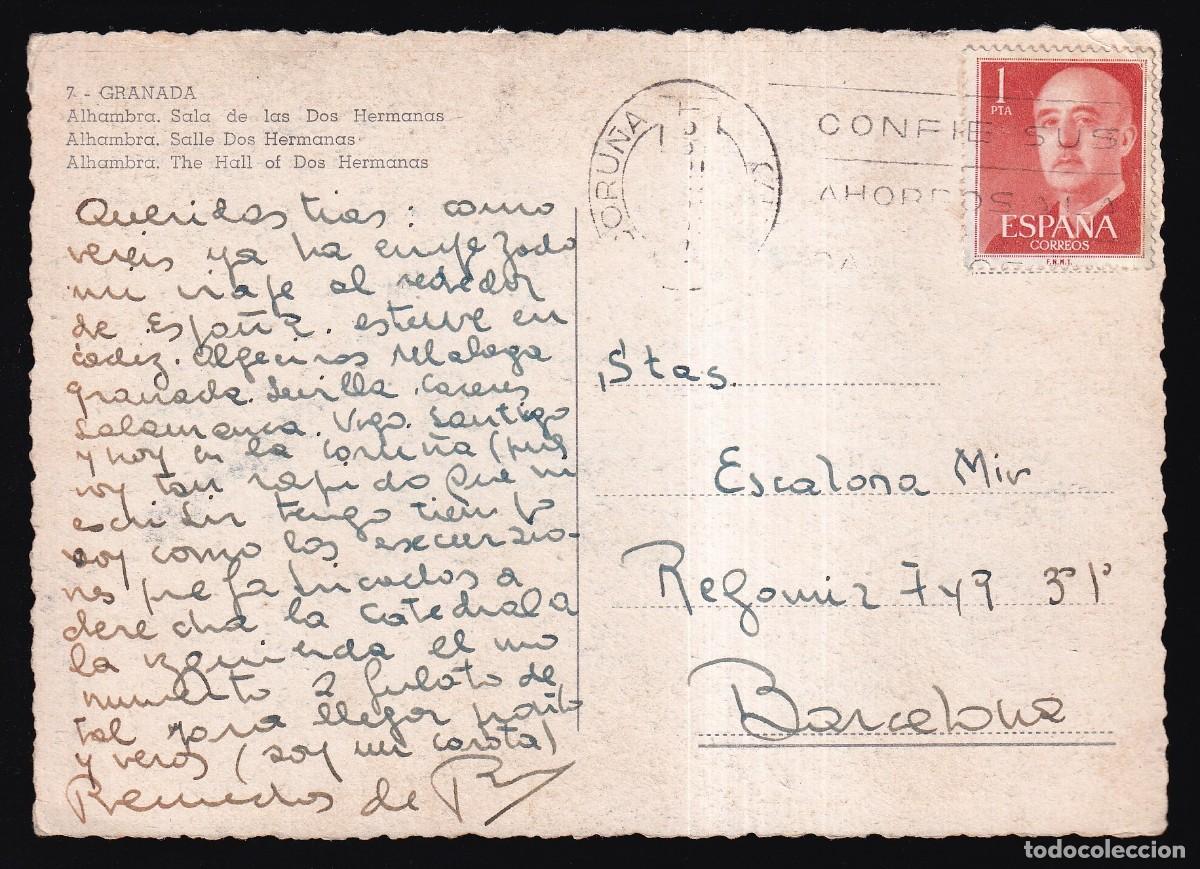 7 - GRANADA
Alhambra. Sala de las Dos Hermanas
Alhambra. Salle Dos Hermanas
Alhambra. The Hall of Dos Hermanas
Queridas tias: como
vereis ya ha empezado
mi viaje al rededor
de España. estuve en
Cadiz. Algeciras Malaga
granada. Sevilla. Caceres
Salamanca. Vigo. Santigo
y hoy en la Coruña (pues
voy tan rapido que ni
escribir tengo tiempo
voy como los excursio-
nes prefabricados a
derecha la Catedral a
la izquierda el mo
numento
tal para llegar
y veros (soy un carota)
de
CORUÑA
CONFIE SUS
AHORROS A LA
1
PTA
ESPAÑA
CORREOS
F.N.M.T.
Stas.
Escalona Mir
Regomir 7 y 9 3º 1ª
Barcelona
todocoleccion